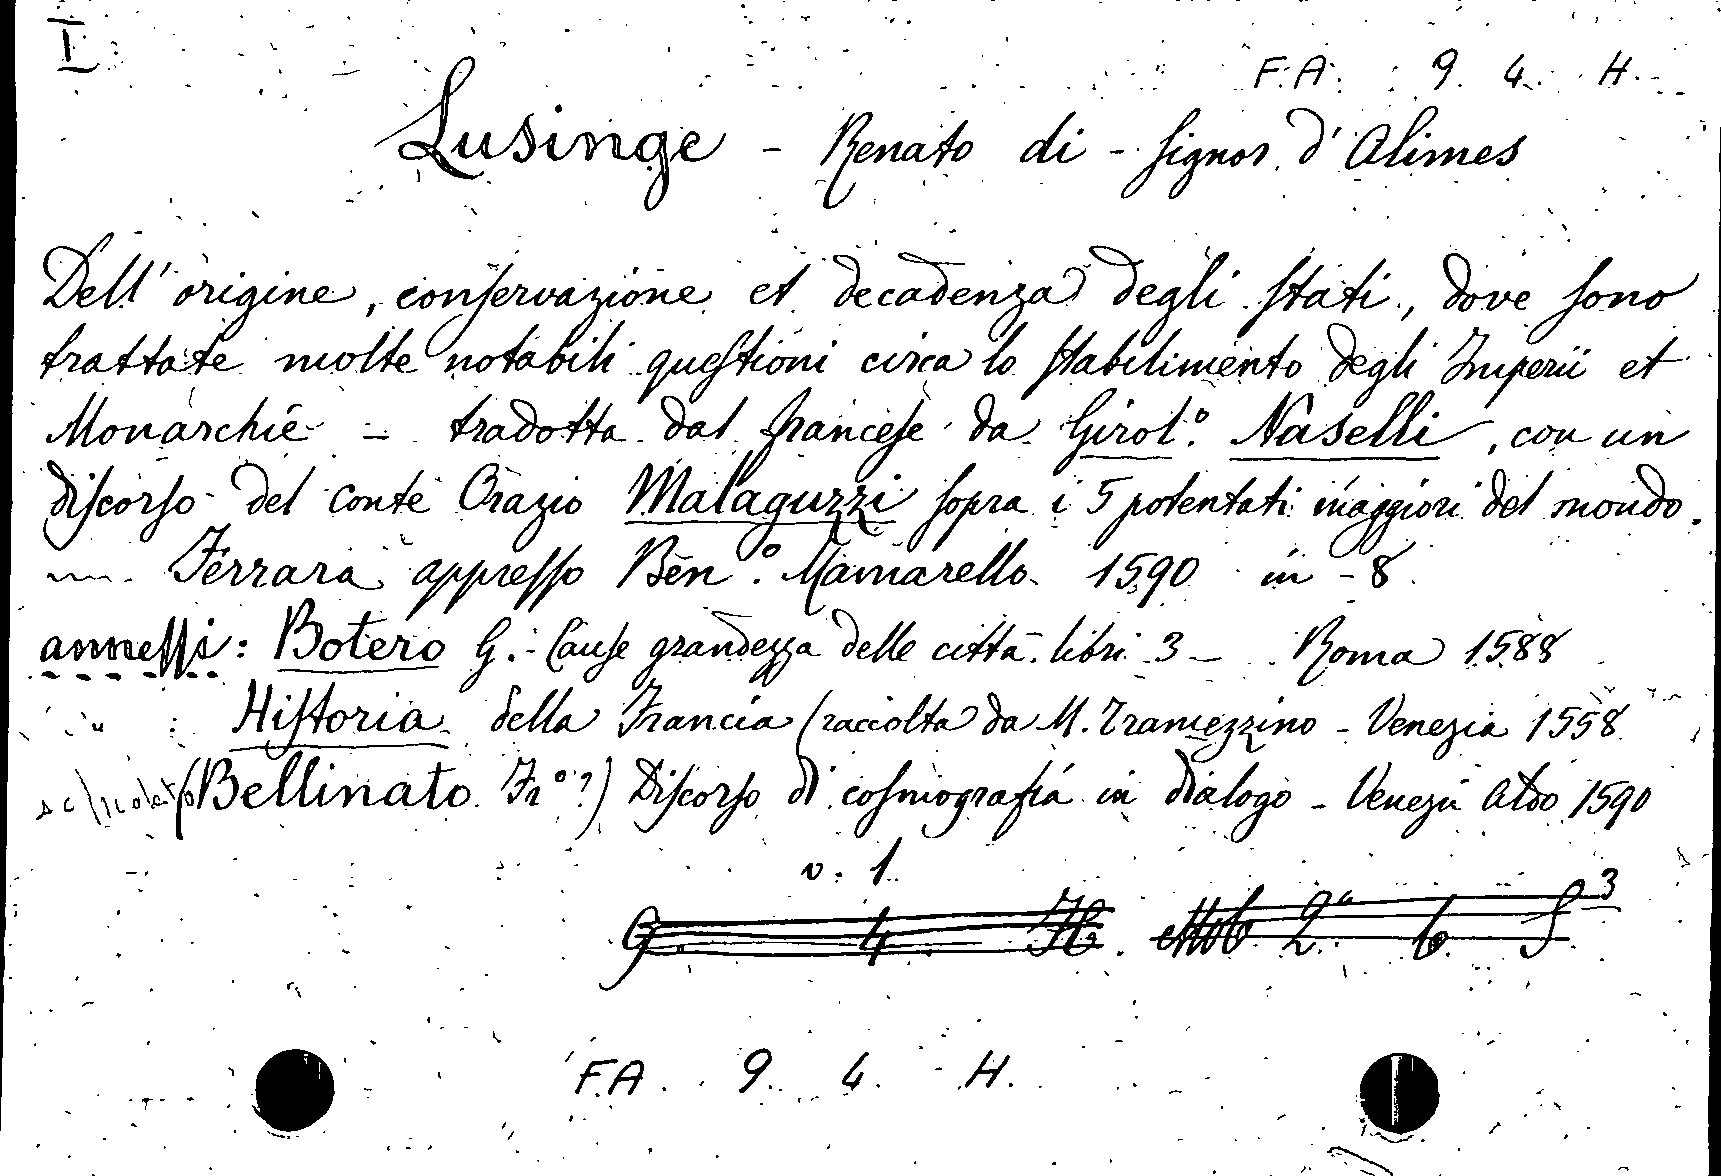 I
F.A. 9. 4. H.
Lusinge - Renato di - Signor d'Alimes
Dell'origine, conservazione et decadenza degli Stati, dove sono
trattate molte notabili questioni circa lo stabilimento degli Imperii et
Monarchie - tradotta dal francese da Girol.º Naselli, con un
discorso del conte Orazio Malaguzzi sopra i 5 potentati maggiori del mondo.
Ferrara appresso Ben.º Mamarello 1590 in-8
annessi: Botero G. - Cause grandezza delle città libri 3 - Roma 1588
Historia della Francia (raccolta da M. Tramezzino - Venezia 1558
(Bellinato Frº?) Discorso di cosmografia in dialogo - Venezia Aldo 1590
v. 1
G. 4. H2. Mob 2ª b. S 3
F.A. 9. 4. H.